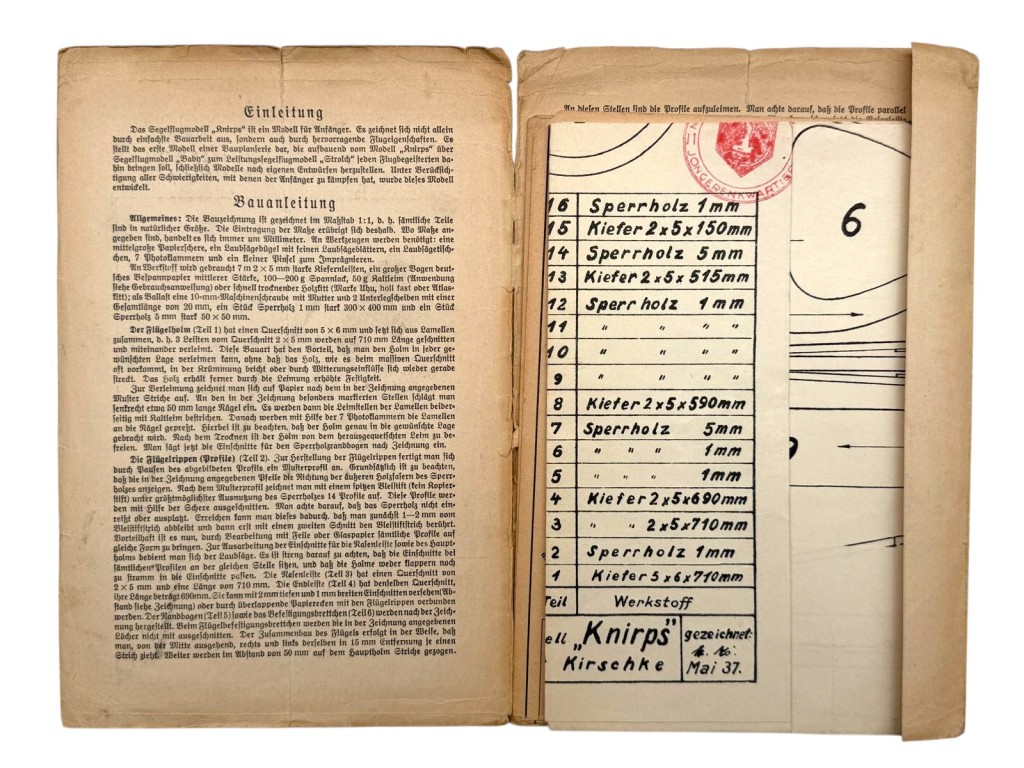 Einleitung
Das Segelflugmodell „Knirps" ist ein Modell für Anfänger. Es zeichnet sich nicht allein
durch einfachste Bauarbeit aus, sondern auch durch hervorragende Flugeigenschaften. Es
stellt das erste Modell einer Bauplanserie dar, die aufbauend vom Modell „Knirps" über
Segelflugmodell „Baby" zum Leistungssegelflugmodell „Strolch" jeden Flugbegeisterten da-
hin bringen soll, schließlich Modelle nach eigenen Entwürfen herzustellen. Unter Berücksich-
tigung aller Schwierigkeiten, mit denen der Anfänger zu kämpfen hat, wurde dieses Modell
entwickelt.
Bauanleitung
Allgemeines: Die Bauzeichnung ist gezeichnet im Maßstab 1:1, d. h. sämtliche Teile
sind in natürlicher Größe. Die Eintragung der Maße erübrigt sich deshalb. Wo Maße an-
gegeben sind, handelt es sich immer um Millimeter. An Werkzeugen werden benötigt: eine
mittelgroße Papierschere, ein Laubsägebügel mit feinen Laubsägeblättern, ein Laubsägetisch-
chen, 7 Photoklammern und ein kleiner Pinsel zum Imprägnieren.
An Werkstoff wird gebraucht 7 m 2 × 5 mm starke Kiefernleisten, ein großer Bogen deut-
sches Bespannpapier mittlerer Stärke, 100—200 g Spannlack, 50 g Kaltleim (Anwendung
siehe Gebrauchsanweisung) oder schnell trocknender Holzkitt (Marke Uhu, holl fast oder Atlas-
kitt); als Ballast eine 10-mm-Maschinenschraube mit Mutter und 2 Unterlegscheiben mit einer
Gesamtlänge von 20 mm, ein Stück Sperrholz 1 mm stark 300 × 400 mm und ein Stück
Sperrholz 5 mm stark 50 × 50 mm.
Der Flügelholm (Teil 1) hat einen Querschnitt von 5 × 6 mm und setzt sich aus Lamellen
zusammen, d. h. 3 Leisten vom Querschnitt 2 × 5 mm werden auf 710 mm Länge geschnitten
und miteinander verleimt. Diese Bauart hat den Vorteil, daß man den Holm in jeder ge-
wünschten Lage verleimen kann, ohne daß das Holz, wie es beim massiven Querschnitt
oft vorkommt, in der Krümmung bricht oder durch Witterungseinflüsse sich wieder gerade
streckt. Das Holz erhält ferner durch die Leimung erhöhte Festigkeit.
Zur Verleimung zeichnet man sich auf Papier nach dem in der Zeichnung angegebenen
Muster Striche auf. An den in der Zeichnung besonders markierten Stellen schlägt man
senkrecht etwa 50 mm lange Nägel ein. Es werden dann die Leimstellen der Lamellen beider-
seitig mit Kaltleim bestrichen. Danach werden mit Hilfe der 7 Photoklammern die Lamellen
an die Nägel gepreßt. Hierbei ist zu beachten, daß der Holm genau in die gewünschte Lage
gebracht wird. Nach dem Trocknen ist der Holm von dem herausgequetschten Leim zu be-
freien. Man sägt jetzt die Einschnitte für den Sperrholzrandbogen nach Zeichnung ein.
Die Flügelrippen (Profile) (Teil 2). Zur Herstellung der Flügelrippen fertigt man sich
durch Pausen des abgebildeten Profils ein Musterprofil an. Grundsätzlich ist zu beachten,
daß die in der Zeichnung angegebenen Pfeile die Richtung der äußeren Holzfasern des Sperr-
holzes anzeigen. Nach dem Musterprofil zeichnet man mit einem spitzen Bleistift (kein Kopier-
stift) unter größtmöglichster Ausnutzung des Sperrholzes 14 Profile auf. Diese Profile wer-
den mit Hilfe der Schere ausgeschnitten. Man achte darauf, daß das Sperrholz nicht ein-
reißt oder ausplatzt. Erreichen kann man dieses dadurch, daß man zunächst 1—2 mm vom
Bleistiftstrich abbleibt und dann erst mit einem zweiten Schnitt den Bleistiftstrich berührt.
Vorteilhaft ist es nun, durch Bearbeitung mit Feile oder Glaspapier sämtliche Profile auf
gleiche Form zu bringen. Zur Ausarbeitung der Einschnitte für die Nasenleiste sowie des Haupt-
holms bedient man sich der Laubsäge. Es ist streng darauf zu achten, daß die Einschnitte bei
sämtlichen Profilen an der gleichen Stelle sitzen, und daß die Holme weder klappern noch
zu stramm in die Einschnitte passen. Die Nasenleiste (Teil 3) hat einen Querschnitt von
2 × 5 mm und eine Länge von 710 mm. Die Endleiste (Teil 4) hat denselben Querschnitt,
ihre Länge beträgt 690mm. Sie kann mit 2mm tiefen und 1 mm breiten Einschnitten versehen (Ab-
stand siehe Zeichnung) oder durch überlappende Papierecken mit den Flügelrippen verbunden
werden. Der Randbogen (Teil 5) sowie das Befestigungsbrettchen (Teil 6) werden nach der Zeich-
nung hergestellt. Beim Flügelbefestigungsbrettchen werden die in der Zeichnung angegebenen
Löcher nicht mit ausgeschnitten. Der Zusammenbau des Flügels erfolgt in der Weise, daß
man, von der Mitte ausgehend, rechts und links derselben in 15 mm Entfernung je einen
Strich zieht. Weiter werden im Abstand von 50 mm auf dem Hauptholm Striche gezogen.
An diesen Stellen sind die Profile aufzuleimen. Man achte darauf, daß die Profile parallel
1
JONGERENKWARTIER
16 Sperrholz 1mm
15 Kiefer 2x5x150mm
14 Sperrholz 5mm
13 Kiefer 2x5x515mm
12 Sperrholz 1mm
11 " " " "
10 " " " "
9 " " " "
8 Kiefer 2x5x590mm
7 Sperrholz 5mm
6 " " " 1mm
5 " " " 1mm
4 Kiefer 2x5x690mm
3 " " 2x5x710mm
2 Sperrholz 1mm
1 Kiefer 5x6x710mm
Teil Werkstoff
ell „Knirps" gezeichnet:
Kirschke Mai 37.
6
9